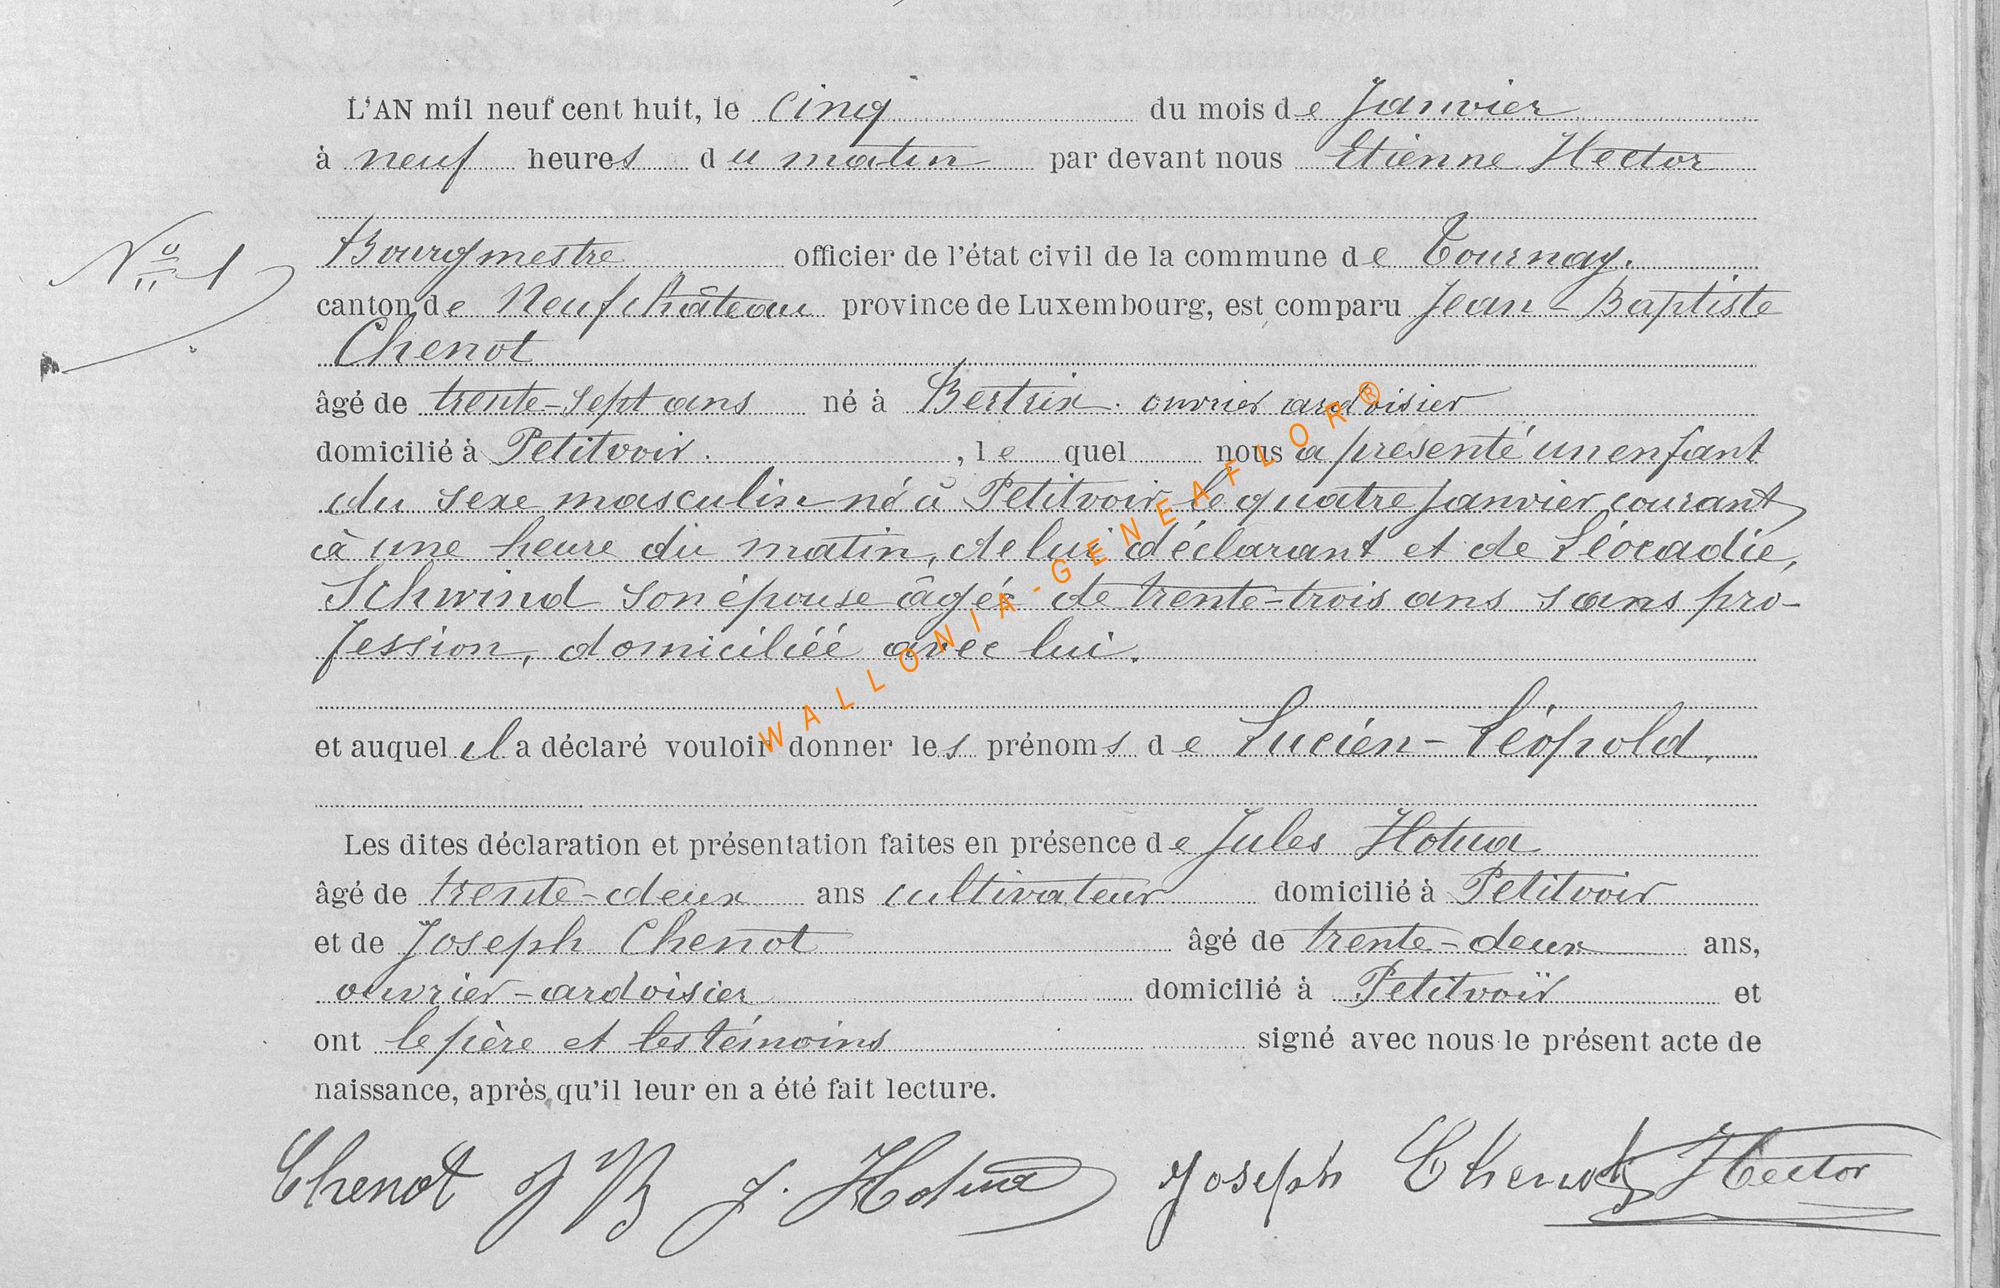 L'AN mil neuf cent huit, le cinq du mois de Janvier
à neuf heures du matin par devant nous Etienne Hector
N° 1
Bourgmestre officier de l'état civil de la commune de Tournay.
canton de Neufchâteau province de Luxembourg, est comparu Jean-Baptiste
Chenot
âgé de trente-sept ans né à Bertrix. ouvrier ardoisier
domicilié à Petitvoir. , le quel nous a présenté un enfant
du sexe masculin né à Petitvoir le quatre janvier courant
à une heure du matin, de lui déclarant et de Léocadie,
Schwind son épouse âgée de trente-trois ans sans pro-
fession, domiciliée avec lui.
et auquel il a déclaré vouloir donner les prénoms de Lucien-Léopold.
Les dites déclaration et présentation faites en présence de Jules Hotua
âgé de trente-deux ans cultivateur domicilié à Petitvoir
et de Joseph Chenot âgé de trente-deux ans,
ouvrier-ardoisier domicilié à Petitvoir et
ont le père et les témoins signé avec nous le présent acte de
naissance, après qu'il leur en a été fait lecture.
Chenot J B J. Hotua Joseph Chenot Hector
WALLONIA-GENEAFLOR®